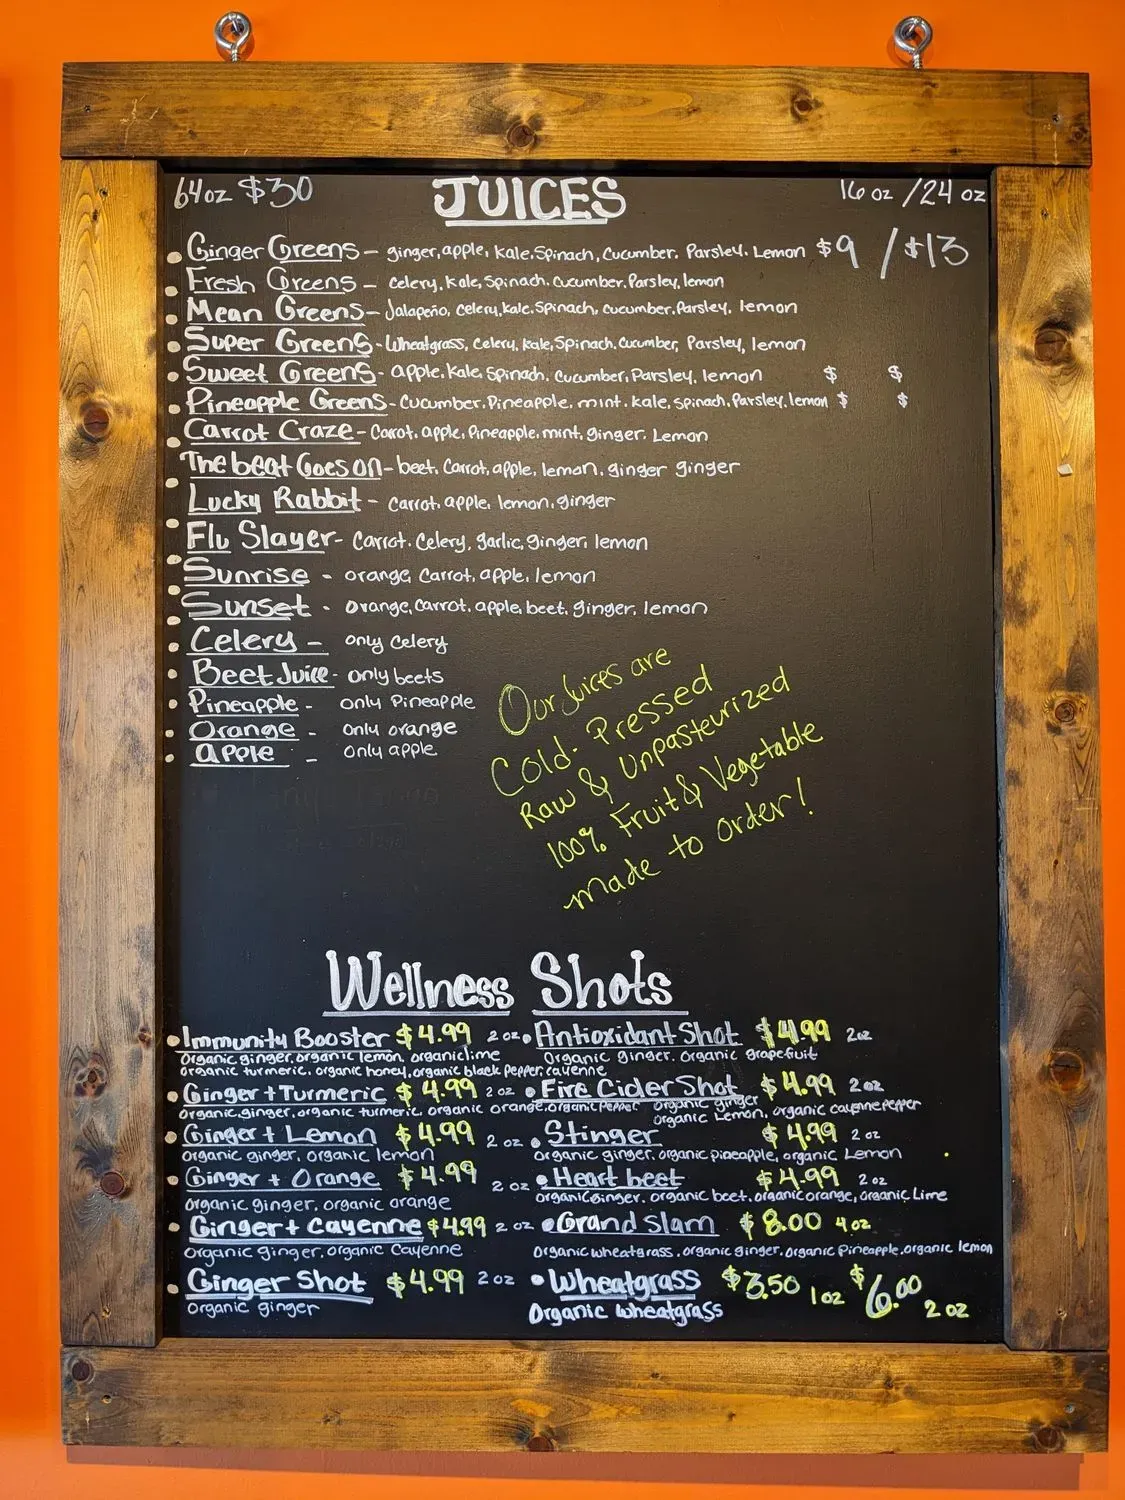 64oz $30 JUICES 16 oz /24 oz
Ginger Greens - ginger, apple, Kale, Spinach, Cucumber. Parsley. Lemon $9 / $13
Fresh Greens - celery, Kale, Spinach, Cucumber, Parsley, lemon
Mean Greens - Jalapeño, celery, kale, Spinach, cucumber, Parsley, lemon
Super Greens - Wheatgrass, celery, kale, Spinach, Cucumber, Parsley, lemon
Sweet Greens - apple, Kale, Spinach, Cucumber, Parsley, lemon $ $
Pineapple Greens - Cucumber, Pineapple, mint, kale, spinach, Parsley, lemon $ $
Carrot Craze - Carrot, apple, Pineapple, mint, ginger, Lemon
The beat Goes on - beet, Carrot, apple, lemon, ginger ginger
Lucky Rabbit - Carrot, apple, lemon, ginger
Flu Slayer - Carrot, Celery, garlic, ginger, lemon
Sunrise - orange, Carrot, apple, lemon
Sunset - orange, carrot, apple, beet, ginger, lemon
Celery - only Celery
Beet Juice - only beets
Pineapple - only Pineapple
Orange - only orange
apple - only apple
Our Juices are
Cold-Pressed
Raw & Unpasteurized
100% Fruit & Vegetable
made to Order!
Wellness Shots
Immunity Booster $4.99 2 oz
Organic ginger, organic lemon, organic lime
Organic turmeric, organic honey, organic black Pepper, cayenne
Ginger + Turmeric $4.99 2 oz
Organic ginger, organic turmeric, organic orange, organic Pepper
Ginger + Lemon $4.99 2 oz
organic ginger, organic lemon
Ginger + Orange $4.99 2 oz
organic ginger, organic orange
Ginger + Cayenne $4.99 2 oz
organic ginger, organic Cayenne
Ginger Shot $4.99 2 oz
Organic ginger
Antioxidant Shot $4.99 2oz
Organic ginger, Organic grapefruit
Fire Cider Shot $4.99 2 oz
organic ginger
organic Lemon, organic cayenne pepper
Stinger $4.99 2 oz
Organic ginger, organic pineapple, organic Lemon
Heart beet $4.99 2 oz
organic Ginger, organic beet, organic orange, organic Lime
Grand Slam $8.00 4 oz
Organic wheatgrass, organic ginger, organic pineapple, organic lemon
Wheatgrass $3.50 1 oz $6.00 2 oz
Organic wheatgrass